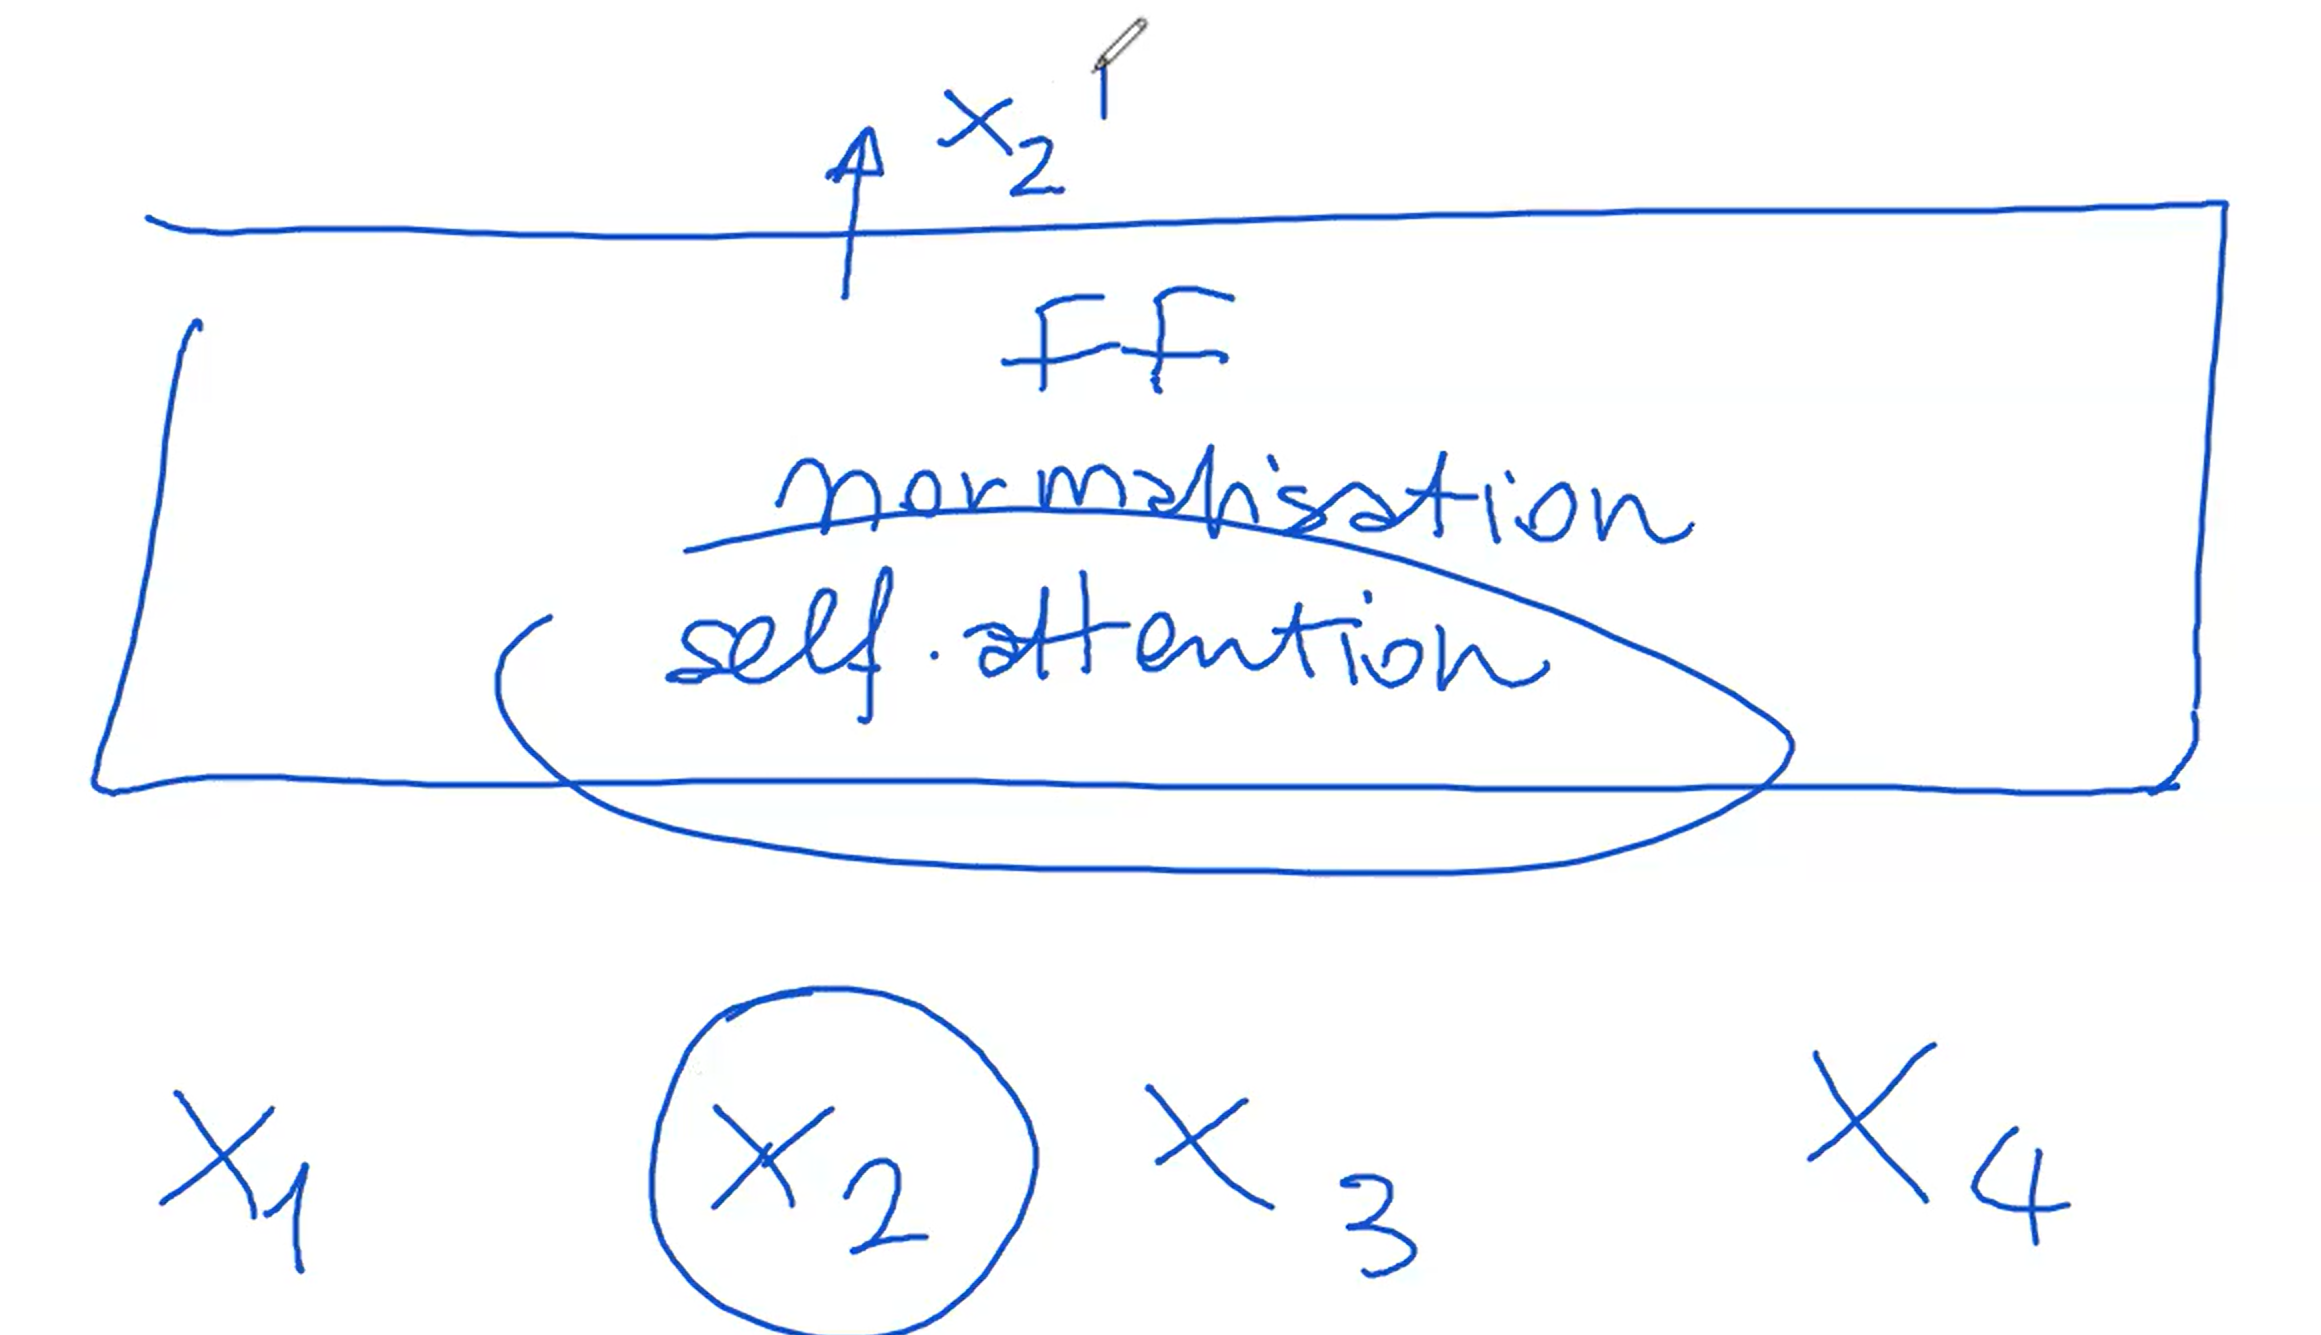 x2'
FF
normalisation
self-attention
x1 x2 x3 x4